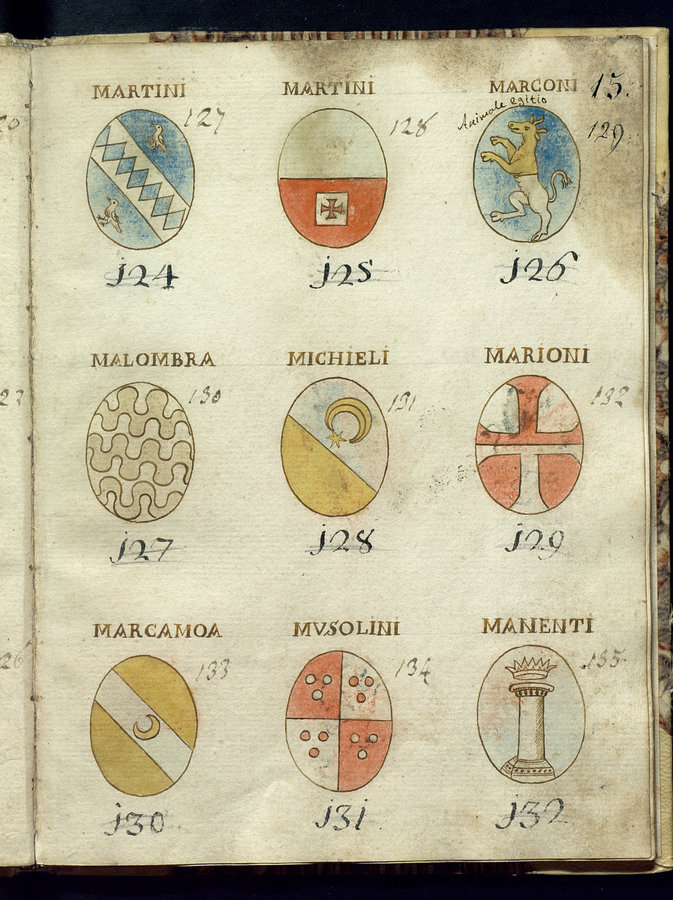 15.
MARTINI
127
124
MARTINI
128
125
MARCONI
Animale egitio
129
126
MALOMBRA
130
127
MICHIELI
131
128
MARIONI
132
129
MARCAMOA
133
130
MVSOLINI
134
131
MANENTI
135
132
23
26